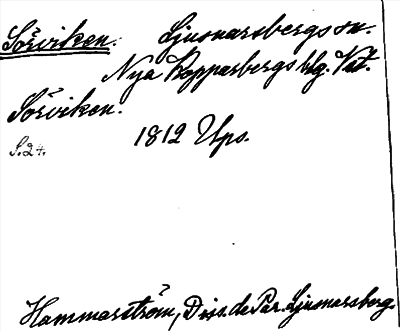 Sörviken. Ljusnarsbergs sn.
Nya Kopparbergs blg. Vst.
Sörviken.
S.24. 1812 Ups.
Hammarström, Diss. de Par. Ljusnarsberg.